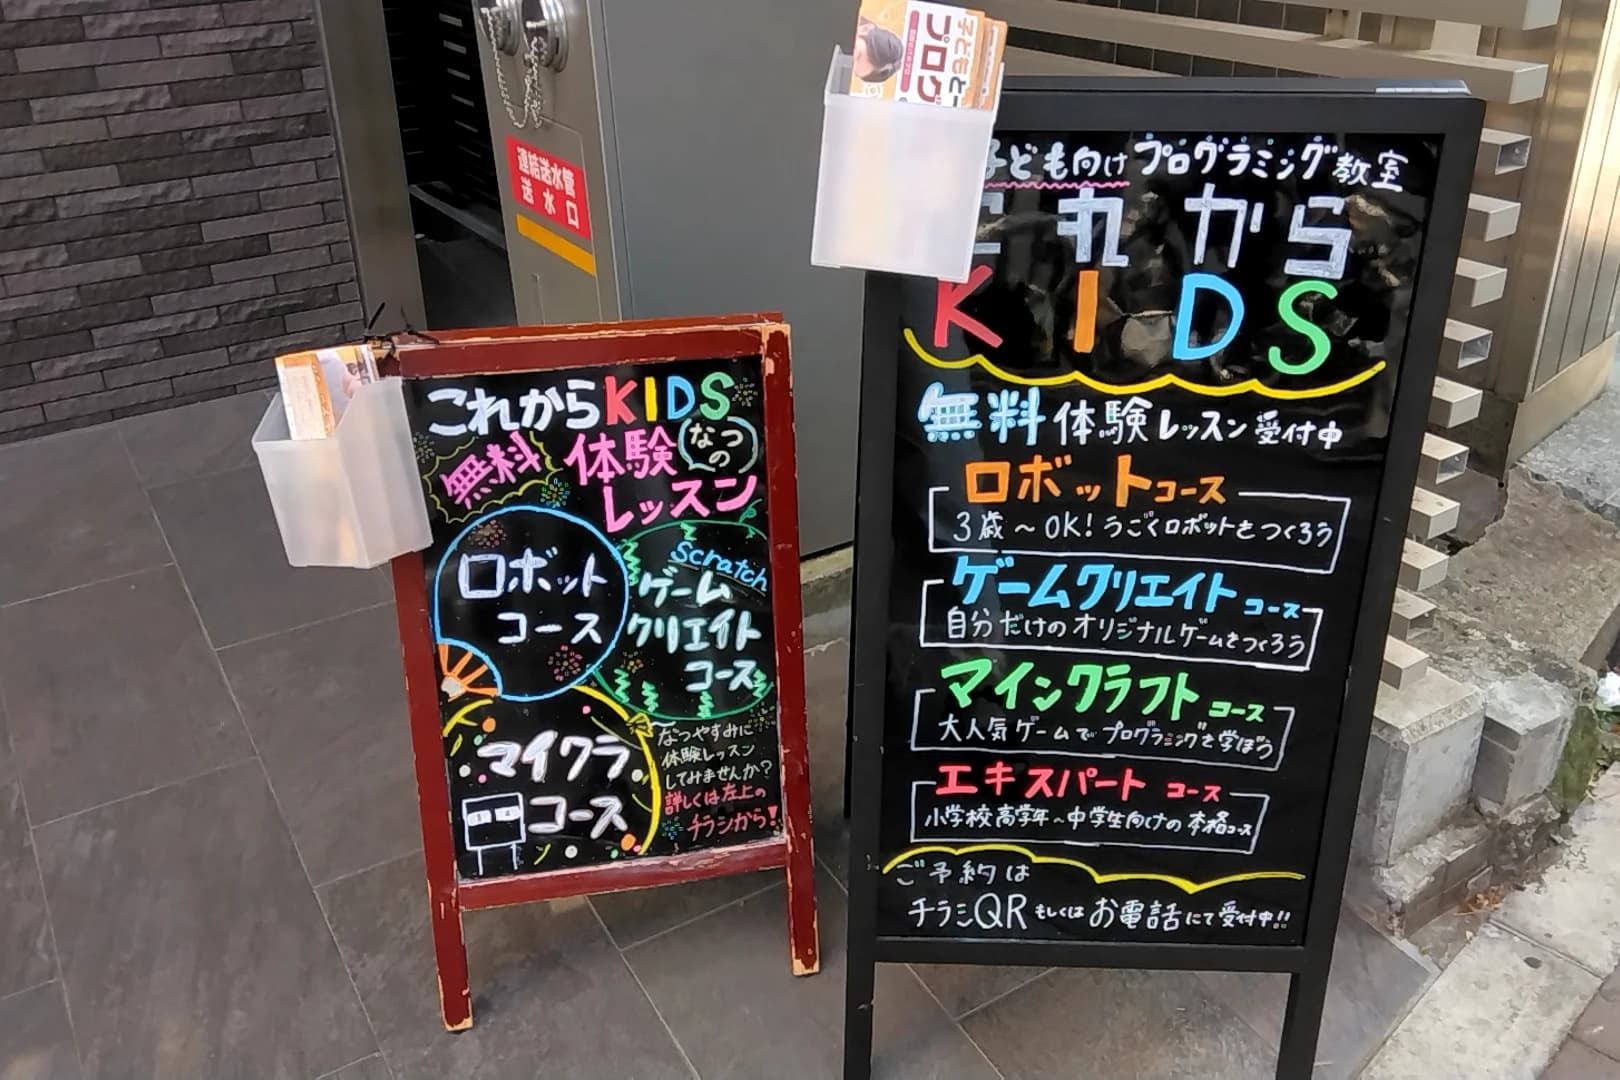 連結送水管
送水口
これからKIDS
無料 体験 なつの
レッスン
ロボット
コース
Scratch
ゲーム
クリエイト
コース
マイクラ
コース
なつやすみに
体験レッスン
してみませんか?
詳しくは左上の
チラシから!
子どもと
プログ
子ども向けプログラミング教室
これから
KIDS
無料体験レッスン受付中
ロボットコース
3歳～OK!うごくロボットをつくろう
ゲームクリエイトコース
自分だけのオリジナルゲームをつくろう
マインクラフトコース
大人気ゲームでプログラミングを学ぼう
エキスパートコース
小学校高学年~中学生向けの本格コース
ご予約は
チラシQRもしくはお電話にて受付中!!